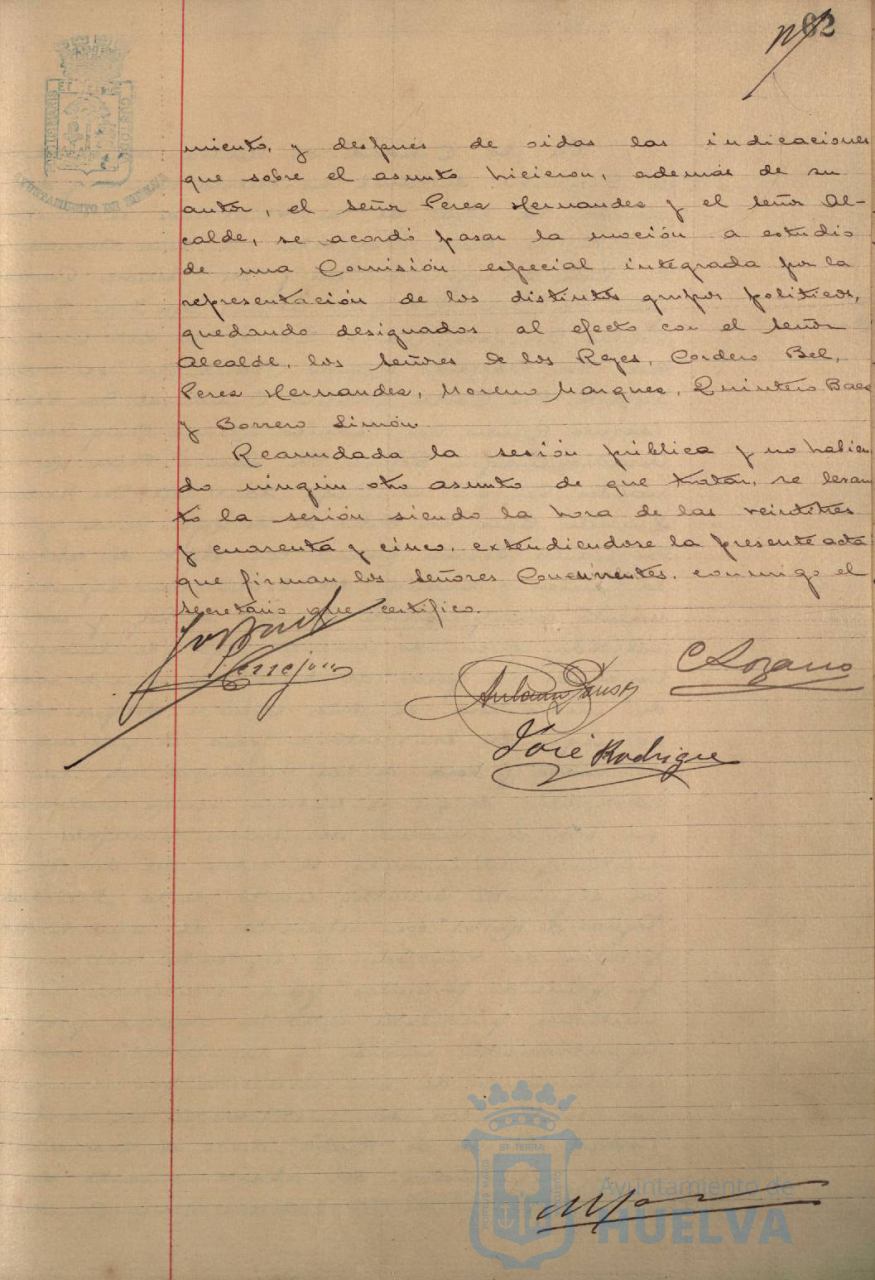 62
AYUNTAMIENTO DE HUELVA
miento, y después de oidas las indicaciones
que sobre el asunto hicieron, además de su
autor, el Señor Perez Hernandez y el Señor Al-
calde, se acordó pasar la moción a estudio
de una Comisión especial integrada por la
representación de los distintos grupos politicos,
quedando designados al efecto con el Señor
Alcalde, los Señores de los Reyes, Cordero Bel,
Perez Hernandez, Moreno Marquez, Quintero Baez
y Borrero Limón.
Reanudada la sesión pública y no habien
do ningún otro asunto de que tratar, se levan
tó la sesión siendo la hora de las veintitres
y cuarenta y cinco, extendiendose la presente acta
que firman los Señores Concurrentes, conmigo el
Secretario que certifico.
C Lozano
Antonio
José Rodrigue
Ayuntamiento de
HUELVA